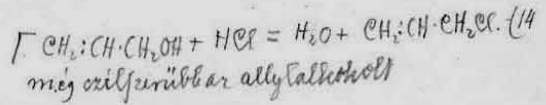 Γ CH₂:CH·CH₂OH + HCl = H₂O + CH₂:CH·CH₂Cl. (14
még czélszerűbb az allylalkoholt